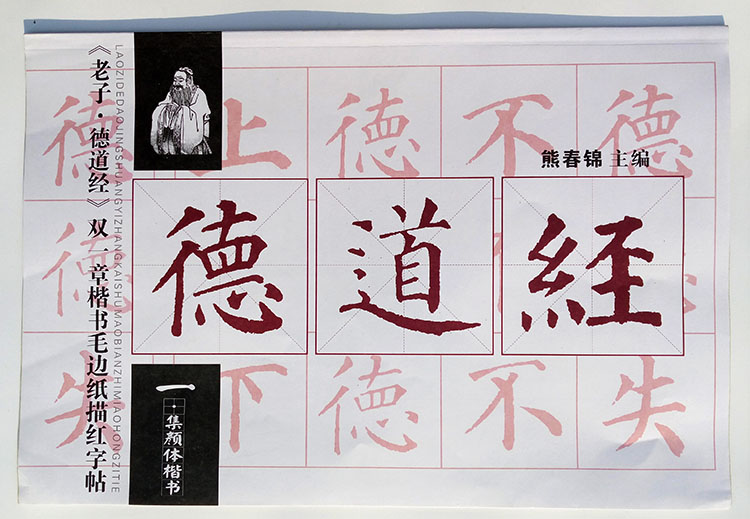 《老子·德道经》双一章楷书毛边纸描红字帖
LAOZIDEDAOJINGSHUANGYIZHANGKAISHUMAOBIANZHIMIAOHONGZITIE
熊春锦 主编
德道經
一·集颜体楷书
德上德不德
德
失下德不失